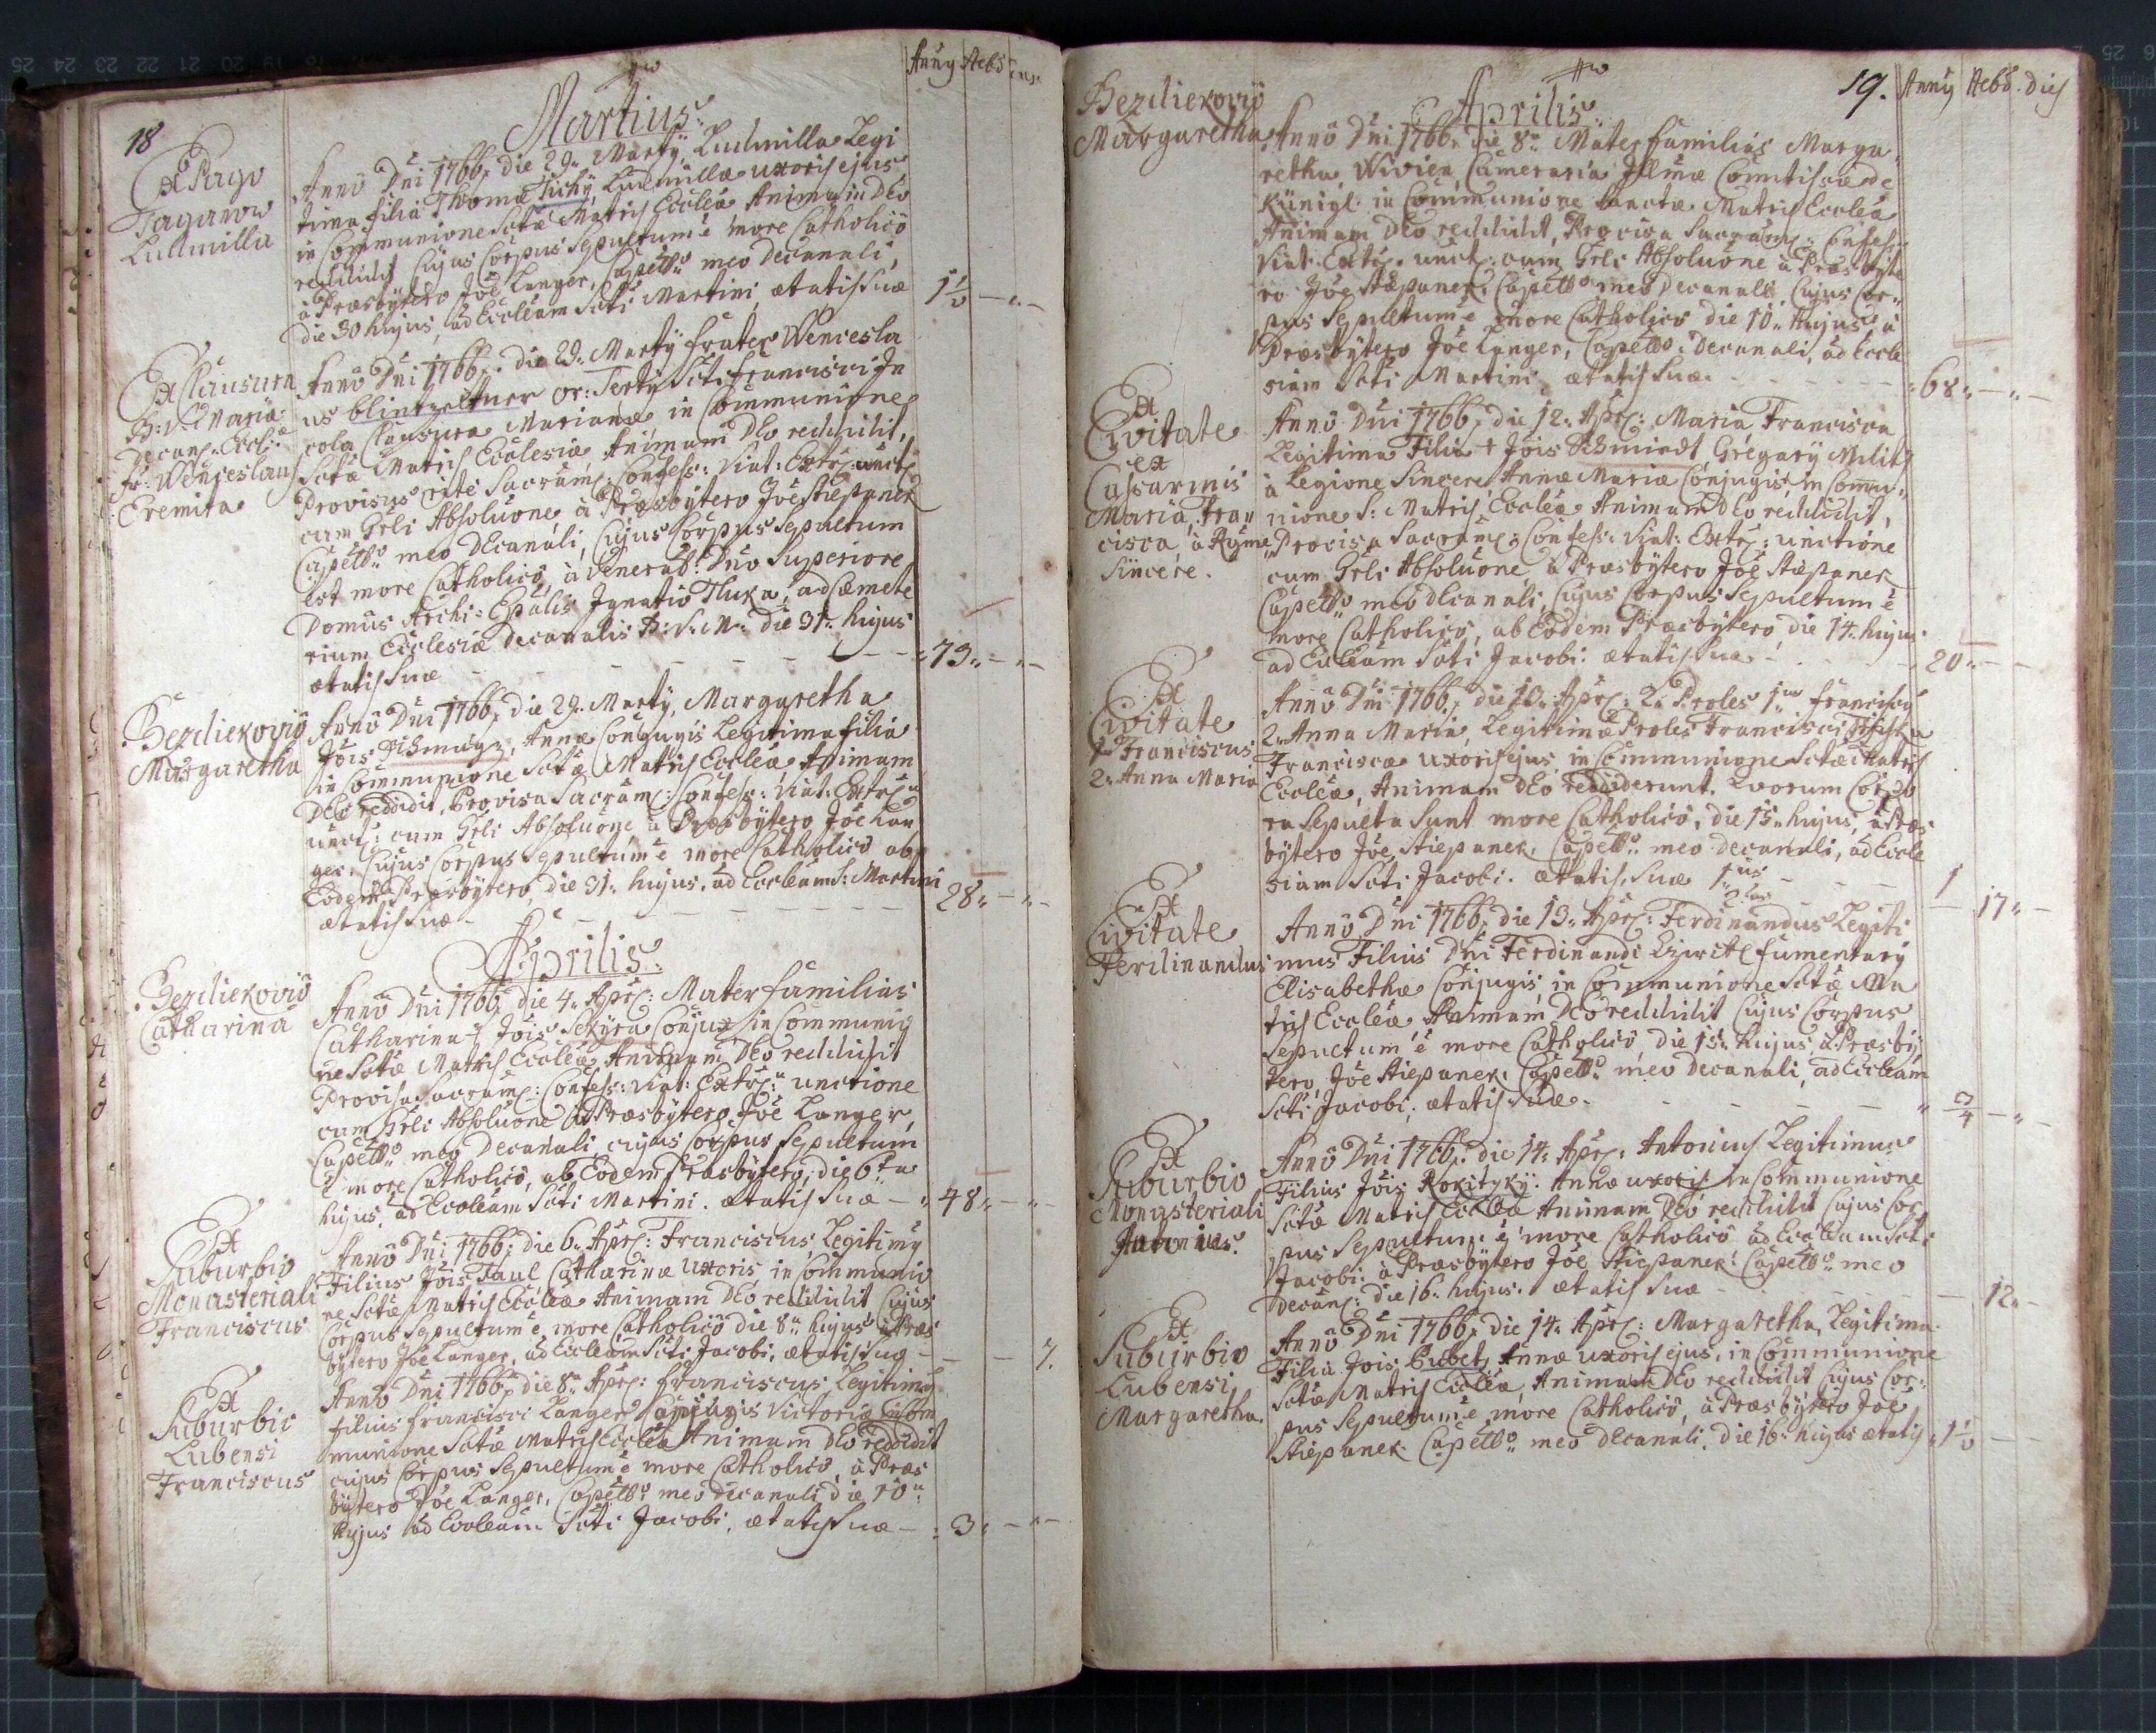 18
Martius.
Anny Hebd
Ex Pago
Taganow
Ludmilla
Anno Dni 1766, die 29. Marty, Ludmilla Legi
tima filia Thomæ Tichÿ, Ludmillæ uxoris ejus
in Communione Sctæ Matris Eccleæ Animam Deo
reddidit Cujus Corpus Sepultum e more Catholico
à Præsbÿtero Joe Langer, Capello meo Decanali,
die 30 hujus, ad Eccleam Scti Martini, ætatis suæ
1 1/2
Ex Clausura
B: V: Mariæ
Decan: Eccl:
Fr: Wenceslaus
Eremita
Anno Dni 1766. die 29. Marty frater Wencesla
us blintzeltner or: Tertÿ Scti Francisci In
cola Clausuræ Marianæ in Communione
Sctæ Matris Ecclesiæ Animam Deo reddidit,
Provisus rite Sacram: Confess: Viat: Extr: unct:
cum Grli Absoluone à Præsbÿtero Joe Stiepanek
Capello meo Decanali, Cujus Corpus Sepultum
est more Catholico, à Venerab: Dno Superiore
Domus Archi-Epalis Ignatio Tluka, ad Cæmete
rium Ecclesiæ decanalis B: V: M: die 31. hujus
ætatis suæ
73
Bezdiekovio
Margaretha
Anno Dni 1766, die 29. Marty, Margaretha
Jois Annæ Conjugis Legitima filia
in Communione Sctæ Matris Eccleæ Animam
Deo reddidit, Provisa Sacram: Confess: Viat: Extr:
unct: cum Grli Absoluone à Præsbÿtero Joe Lan
ger, Cujus Corpus Sepultum e more Catholico ab
Eodem Præsbÿtero, die 31. hujus, ad Eccleam S: Martini
ætatis suæ
28
Aprilis.
Bezdiekovio
Catharina
Anno Dni 1766, die 4. Apr: Mater familias
Catharina Jois Sekÿra Conjux in Communio
ne Sctæ Matris Eccleæ Animam Deo reddidit
Provisa Sacram: Confess: Viat: Extr: unctione
cum Grli Absoluone à Præsbÿtero Joe Langer,
Capello meo Decanali, cujus Corpus Sepultum
e more Catholico, ab Eodem Præsbÿtero, die 6ta
hujus, ad Eccleam Scti Martini. ætatis suæ
48
Ex
Suburbio
Monasteriali
Franciscus
Anno Dni 1766, die 6. Apr: Franciscus Legitimÿ
Filius Jois Taul Catharinæ Uxoris in Communio
ne Sctæ Matris Eccleæ Animam Deo reddidit Cujus
Corpus Sepultum e more Catholico die 8. hujus à Præs
bÿtero Joe Langer, ad Eccleam Scti Jacobi, ætatis suæ
7.
Ex
Suburbio
Lubensi
Franciscus
Anno Dni 1766, die 8. Apr: Franciscus, Legitimÿ
filius Francisci Langer Conjugis Victoriæ in Com
munione Sctæ Matris Eccleæ Animam Deo reddidit
cujus Corpus Sepultum e more Catholico, à Præs
bÿtero Joe Langer, Capello meo Decanali, die 10.
hujus ad Eccleam Scti Jacobi, ætatis suæ
3
19.
Aprilis.
Anny Hebd. Dies
Bezdiekovio
Margaretha
Anno Dni 1766. die 8. Mater familias Marga
retha, Wivien, Cameraria Illmæ Comitissæ de
Künigl. in Communione Sanctæ Matris Eccleæ
Animam Deo reddidit, Provisa Sacram: Confess:
Viat: Extr: unct: cum Grli Absoluone à Præsbÿte
ro Joe Stiepanek, Capello meo Decanali, Cujus Cor
pus Sepultum e more Catholico die 10. hujus à
Præsbÿtero Joe Langer, Capello Decanali, ad Eccle
siam Scti Martini, ætatis suæ.
68
Ex
Civitate
ex
Casarmis
Maria Fran
cisca
Sincere.
Anno Dni 1766, die 12. Apr: Maria Francisca
Legitima Filia † Jois Schmiedt Gregarÿ Milit
à Legione Sincere Annæ Mariæ Conjugis in Commu
nione S: Matris Eccleæ Animam Deo reddidit,
Provisa Sacram: Confess: Viat: Extr: unctione
cum Grli Absoluone, à Præsbÿtero Joe Stiepanek
Capello meo decanali, Cujus Corpus Sepultum e
more Catholico, ab Eodem Præsbÿtero die 14. hujus
ad Eccleam Scti Jacobi: ætatis suæ
20
Ex
Civitate
1. Franciscus
2. Anna Maria
Anno Dni 1766, die 13. Apr: 2. Proles 1us Franciscÿ
2. Anna Maria, Legitimæ Proles Francisci
Franciscæ uxoris ejus, in Communione Sctæ Matris
Eccleæ, Animam Deo reddiderunt. Quorum Corpo
ra Sepulta sunt more Catholico, die 15. hujus, à Præs
bÿtero Joe Stiepanek, Capello meo decanali, ad Eccle
siam Scti Jacobi. ætatis suæ 1us
2da
1
17
Ex
Civitate
Ferdinandus
Anno Dni 1766, die 13. Apr: Ferdinandus Legiti
mus Filius Dni Ferdinandi fumentarÿ
Elisabethæ Conjugis in Communione Sctæ Ma
tris Eccleæ Animam Deo reddidit Cujus Corpus
Sepultum e more Catholico die 15. hujus à Præsbÿ
tero Joe Stiepanek, Capello meo Decanali, ad Eccleam
Scti Jacobi: ætatis suæ.
3/4
Ex
Suburbio
Monasteriali
Antonius.
Anno Dni 1766, die 14. Apr: Antonius Legitimus
Filius Jois Rokitÿkÿ. Annæ uxoris in Communione
Sctæ Matris Eccleæ Animam Deo reddidit Cujus Cor
pus Sepultum e more Catholico ad Eccleam Scti
Jacobi: à Præsbÿtero Joe Stiepanek Capello meo
Decan: die 16. hujus. ætatis suæ
12
Ex
Suburbio
Lubensi
Margaretha.
Anno Dni 1766, die 14. Apr: Margaretha, Legitima
Filia Jois Annæ uxoris ejus, in Communione
Sctæ Matris Eccleæ, Animam Deo reddidit Cujus Cor
pus Sepultum e more Catholico, à Præsbÿtero Joe
Stiepanek Capello meo Decanali, die 16. hujus ætatis
1 1/2